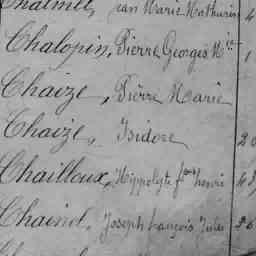 Jean Marie Mathurin 4
Chalopin, Pierre Georges M.ie 1
Chaize, Pierre Marie
Chaize, Isidore 20
Chailloux, Hippolyte f.ois henri 48
Chainel, Joseph françois Jules 20